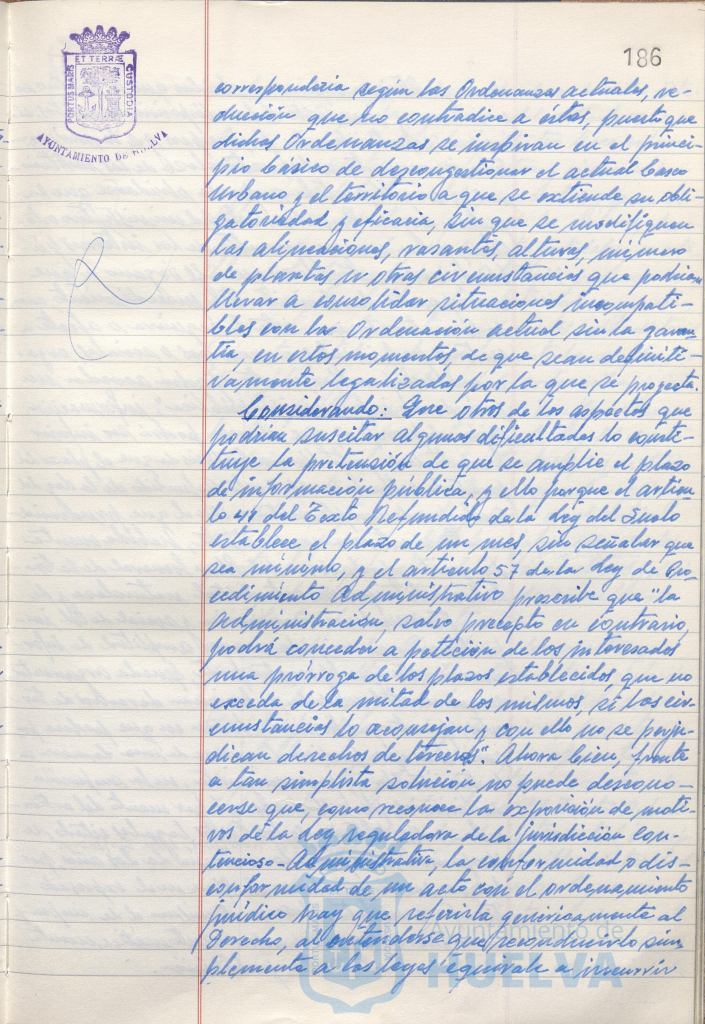 186
PORTUS MARIS
ET TERRÆ
CUSTODIA
AYUNTAMIENTO DE HUELVA
correspondería según las Ordenanzas actuales, re-
ducción que no contradice a éstas, puesto que
dichas Ordenanzas se inspiran en el princi-
pio básico de descongestionar el actual Casco
Urbano y el territorio a que se extiende su obli-
gatoriedad y eficacia, sin que se modifiquen
las alineaciones, rasantes, alturas, número
de plantas u otras circunstancias que podrían
llevar a consolidar situaciones incompati-
bles con la Ordenación actual sin la garan-
tía, en estos momentos, de que sean definiti-
vamente legalizadas por la que se proyecta.
Considerando: Que otros de los aspectos que
podrían suscitar algunas dificultades lo consti-
tuye la pretensión de que se amplíe el plazo
de información pública, y ello porque el artícu-
lo 41 del Texto Refundido de la Ley del Suelo
establece el plazo de un mes, sin señalar que
sea mínimo, y el artículo 57 de la Ley de Pro-
cedimiento Administrativo prescribe que "la
administración, salvo precepto en contrario,
podrá conceder a petición de los interesados
una prórroga de los plazos establecidos, que no
exceda de la mitad de los mismos, si las cir-
cunstancias lo aconsejan y con ello no se perju-
dican derechos de terceros". Ahora bien, frente
a tan simplista solución no puede descono-
cerse que, como reconoce la exposición de moti-
vos de la Ley reguladora de la jurisdicción Con-
tencioso-Administrativa, la conformidad o dis-
conformidad de un acto con el ordenamiento
jurídico hay que referirla genéricamente al
Derecho, al entenderse que reconducirlo sim
plemente a las leyes equivale a incurrir
Ayuntamiento de
HUELVA